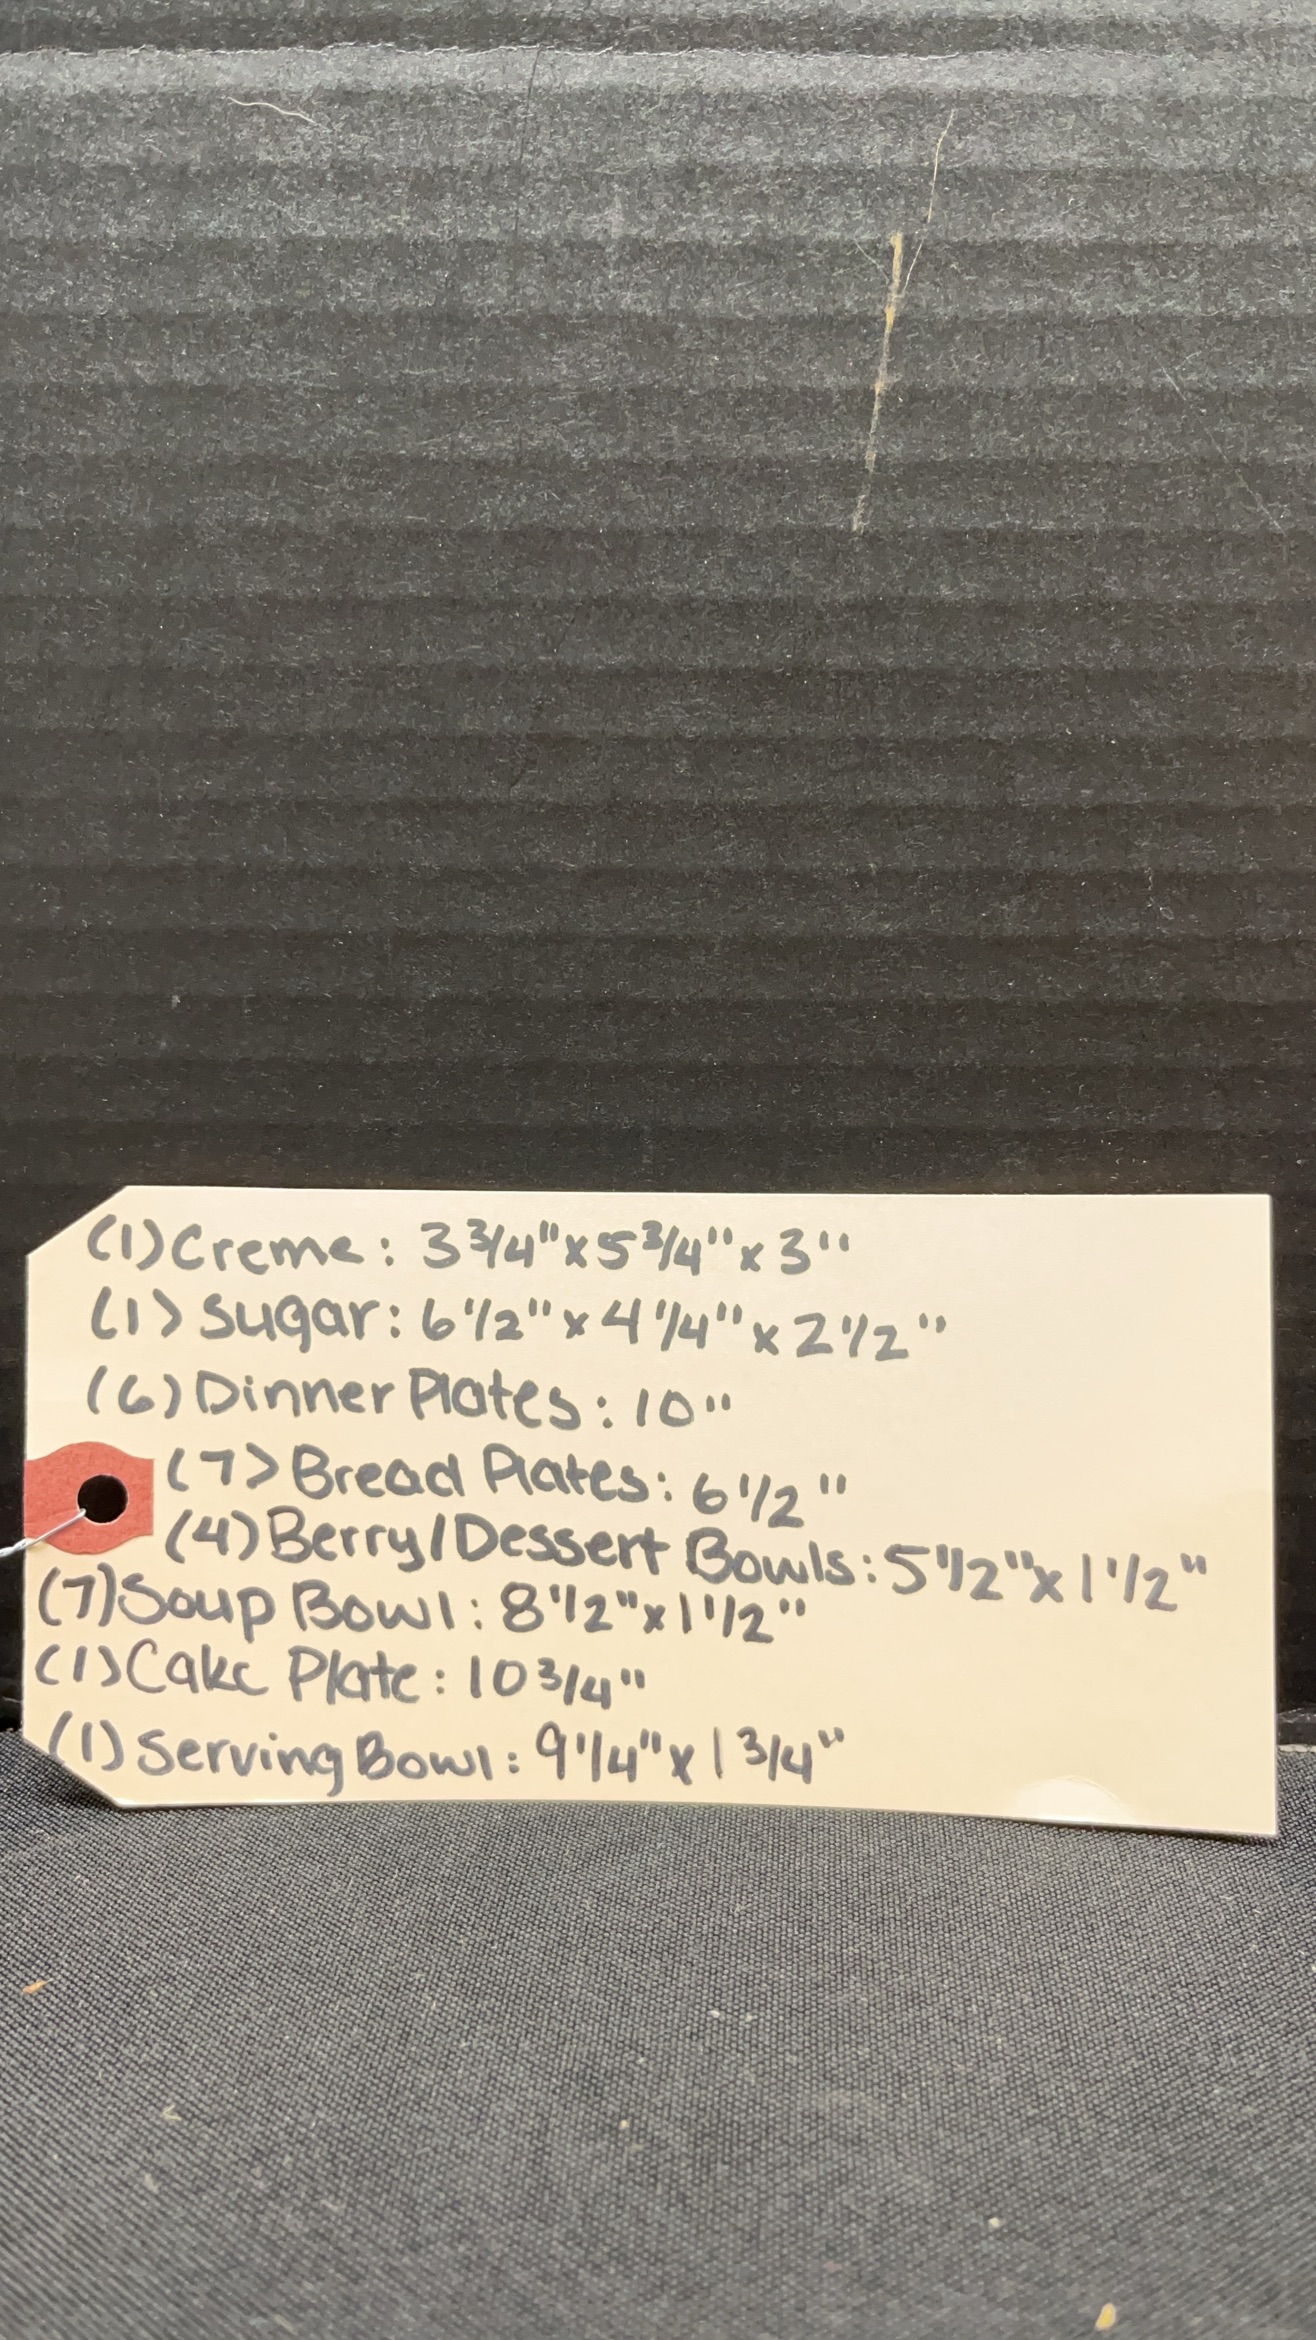 (1) Creme: 3 3/4" x 5 3/4" x 3"
(1) Sugar: 6 1/2" x 4 1/4" x 2 1/2"
(6) Dinner Plates: 10"
(7) Bread Plates: 6 1/2"
(4) Berry/Dessert Bowls: 5 1/2" x 1 1/2"
(7) Soup Bowl: 8 1/2" x 1 1/2"
(1) Cake Plate: 10 3/4"
(1) Serving Bowl: 9 1/4" x 1 3/4"